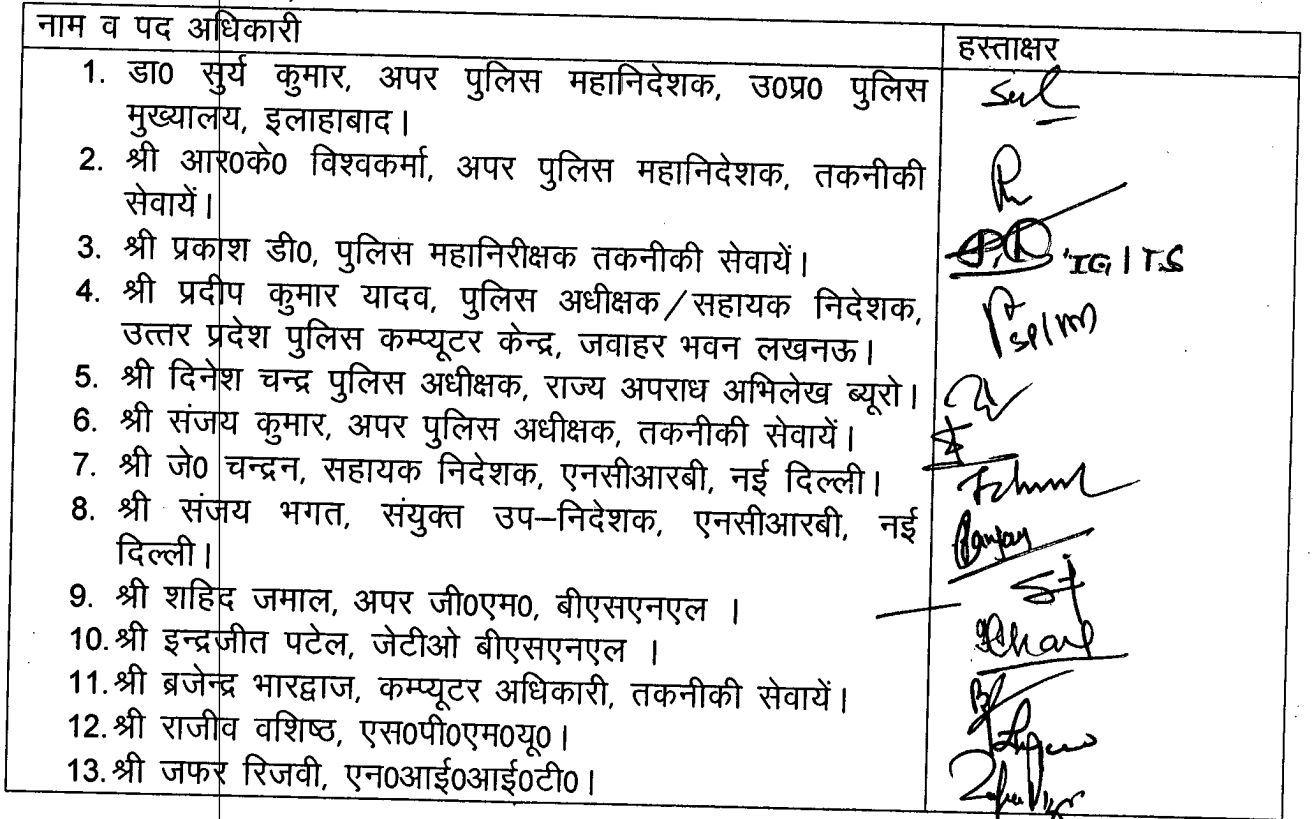 नाम व पद अधिकारी
हस्ताक्षर
1. डा0 सुर्य कुमार, अपर पुलिस महानिदेशक, उ0प्र0 पुलिस
मुख्यालय, इलाहाबाद।
2. श्री आर0के0 विश्वकर्मा, अपर पुलिस महानिदेशक, तकनीकी
सेवायें।
3. श्री प्रकाश डी0, पुलिस महानिरीक्षक तकनीकी सेवायें।
IG/TS
4. श्री प्रदीप कुमार यादव, पुलिस अधीक्षक/सहायक निदेशक,
उत्तर प्रदेश पुलिस कम्प्यूटर केन्द्र, जवाहर भवन लखनऊ।
5. श्री दिनेश चन्द्र पुलिस अधीक्षक, राज्य अपराध अभिलेख ब्यूरो।
6. श्री संजय कुमार, अपर पुलिस अधीक्षक, तकनीकी सेवायें।
7. श्री जे0 चन्द्रन, सहायक निदेशक, एनसीआरबी, नई दिल्ली।
8. श्री संजय भगत, संयुक्त उप–निदेशक, एनसीआरबी, नई
दिल्ली।
9. श्री शहिद जमाल, अपर जी0एम0, बीएसएनएल ।
10. श्री इन्द्रजीत पटेल, जेटीओ बीएसएनएल ।
11. श्री ब्रजेन्द्र भारद्वाज, कम्प्यूटर अधिकारी, तकनीकी सेवायें।
12. श्री राजीव वशिष्ठ, एस0पी0एम0यू0।
13. श्री जफर रिजवी, एन0आई0आई0टी0।